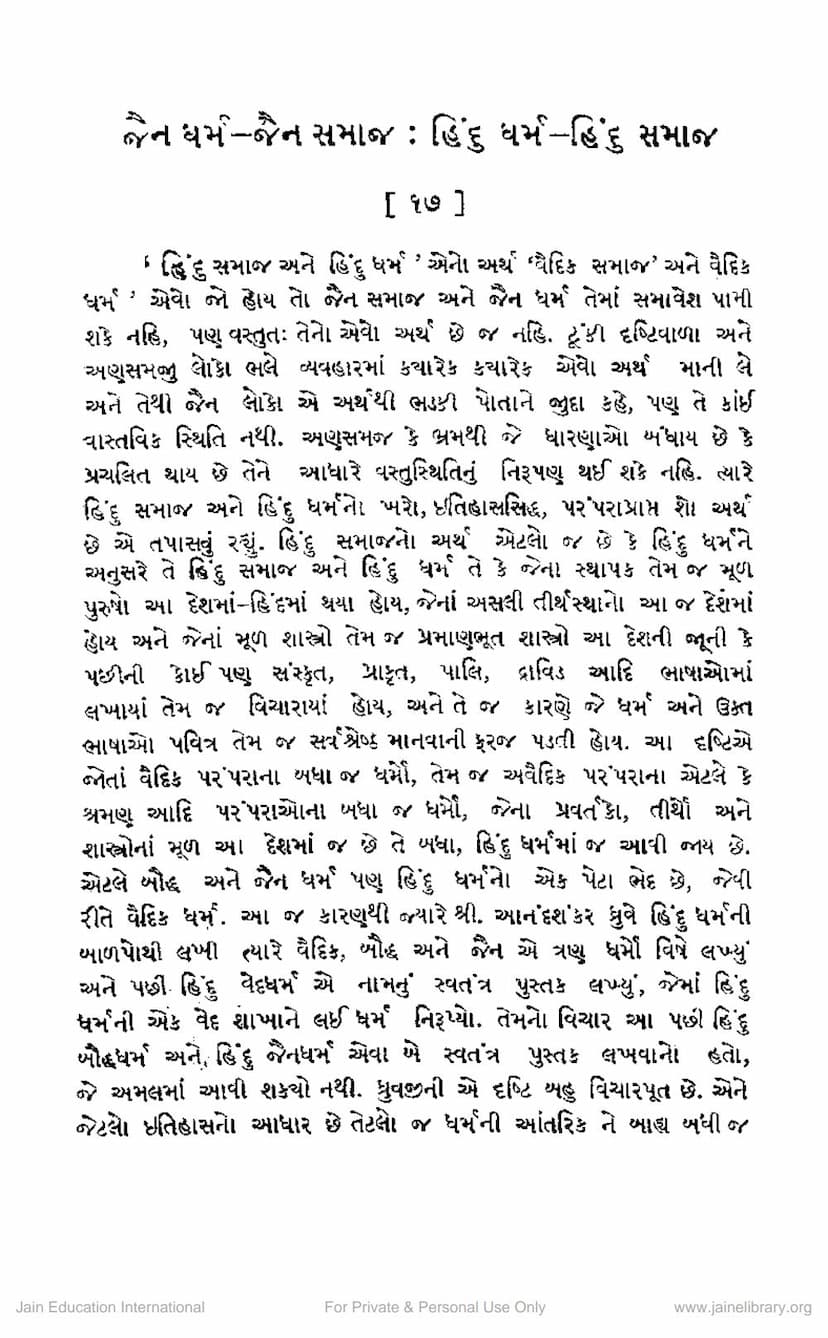 જૈન ધર્મ–જૈન સમાજ : હિંદુ ધર્મ–હિંદુ સમાજ
[ ૧૭ ]
‘ હિંદુ સમાજ અને હિંદુ ધર્મ ’ એનો અર્થ ‘વૈદિક સમાજ’ અને વૈદિક
ધર્મ ’ એવો જો હોય તો જૈન સમાજ અને જૈન ધર્મ તેમાં સમાવેશ પામી
શકે નહિ, પણ વસ્તુતઃ તેનો એવો અર્થ છે જ નહિ. ટૂંકી દષ્ટિવાળા અને
અણસમજુ લોકો ભલે વ્યવહારમાં ક્યારેક ક્યારેક એવો અર્થ માની લે
અને તેથી જૈન લોકો એ અર્થથી ભડકી પોતાને જુદા કહે, પણ તે કાંઈ
વાસ્તવિક સ્થિતિ નથી. અણસમજ કે ભ્રમથી જે ધારણાઓ બંધાય છે કે
પ્રચલિત થાય છે તેને આધારે વસ્તુસ્થિતિનું નિરૂપણ થઈ શકે નહિ. ત્યારે
હિંદુ સમાજ અને હિંદુ ધર્મનો ખરો, ઇતિહાસસિદ્ધ, પરંપરાપ્રાપ્ત શો અર્થ
છે એ તપાસવું રહ્યું. હિંદુ સમાજનો અર્થ એટલો જ છે કે હિંદુ ધર્મને
અનુસરે તે હિંદુ સમાજ અને હિંદુ ધર્મ તે કે જેના સ્થાપક તેમ જ મૂળ
પુરુષો આ દેશમાં–હિંદમાં થયા હોય, જેનાં અસલી તીર્થસ્થાનો આ જ દેશમાં
હોય અને જેનાં મૂળ શાસ્ત્રો તેમ જ પ્રમાણભૂત શાસ્ત્રો આ દેશની જૂની કે
પછીની કોઈ પણ સંસ્કૃત, પ્રાકૃત, પાલિ, દ્રાવિડ આદિ ભાષાઓમાં
લખાયાં તેમ જ વિચારાયાં હોય, અને તે જ કારણે જે ધર્મ અને ઉક્ત
ભાષાઓ પવિત્ર તેમ જ સર્વશ્રેષ્ઠ માનવાની ફરજ પડતી હોય. આ દષ્ટિએ
જોતાં વૈદિક પરંપરાના બધા જ ધર્મો, તેમ જ અવૈદિક પરંપરાના એટલે કે
શ્રમણ આદિ પરંપરાઓના બધા જ ધર્મો, જેના પ્રવર્તકો, તીર્થો અને
શાસ્ત્રોનાં મૂળ આ દેશમાં જ છે તે બધા, હિંદુ ધર્મમાં જ આવી જાય છે.
એટલે બૌદ્ધ અને જૈન ધર્મ પણ હિંદુ ધર્મનો એક પેટા ભેદ છે, જેવી
રીતે વૈદિક ધર્મ. આ જ કારણથી જ્યારે શ્રી. આનંદશંકર ધ્રુવે હિંદુ ધર્મની
બાળપોથી લખી ત્યારે વૈદિક, બૌદ્ધ અને જૈન એ ત્રણ ધર્મો વિષે લખ્યું
અને પછી હિંદુ વેદધર્મ એ નામનું સ્વતંત્ર પુસ્તક લખ્યું, જેમાં હિંદુ
ધર્મની એક વેદ શાખાને લઈ ધર્મ નિરૂપ્યો. તેમનો વિચાર આ પછી હિંદુ
બૌદ્ધધર્મ અને, હિંદુ જૈનધર્મ એવા બે સ્વતંત્ર પુસ્તક લખવાનો હતો,
જે અમલમાં આવી શક્યો નથી. ધ્રુવજીની એ દષ્ટિ બહુ વિચારપૂત છે. એને
જેટલો ઇતિહાસનો આધાર છે તેટલો જ ધર્મની આંતરિક ને બાહ્ય બધી જ
Jain Education International
For Private & Personal Use Only
www.jainelibrary.org